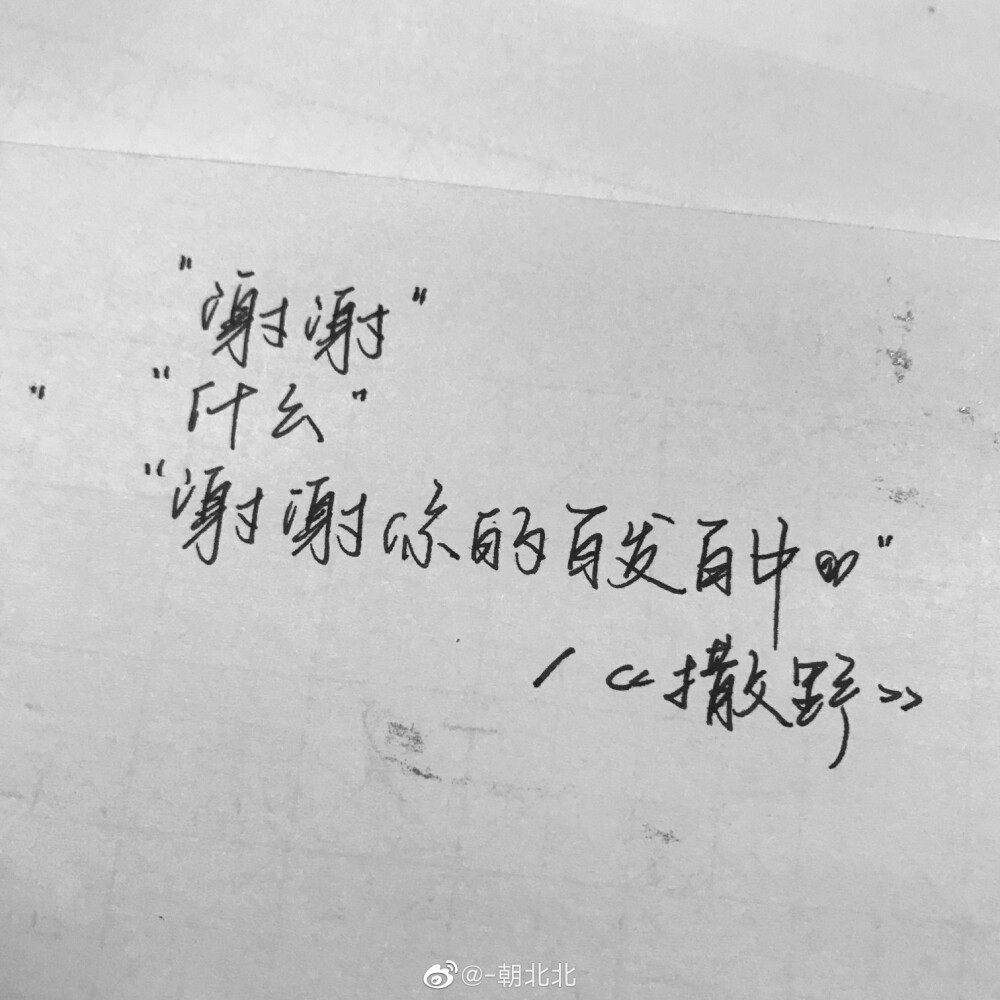 "谢谢"
" "什么"
"谢谢你的百发百中。"
/《撒野》
@-朝北北